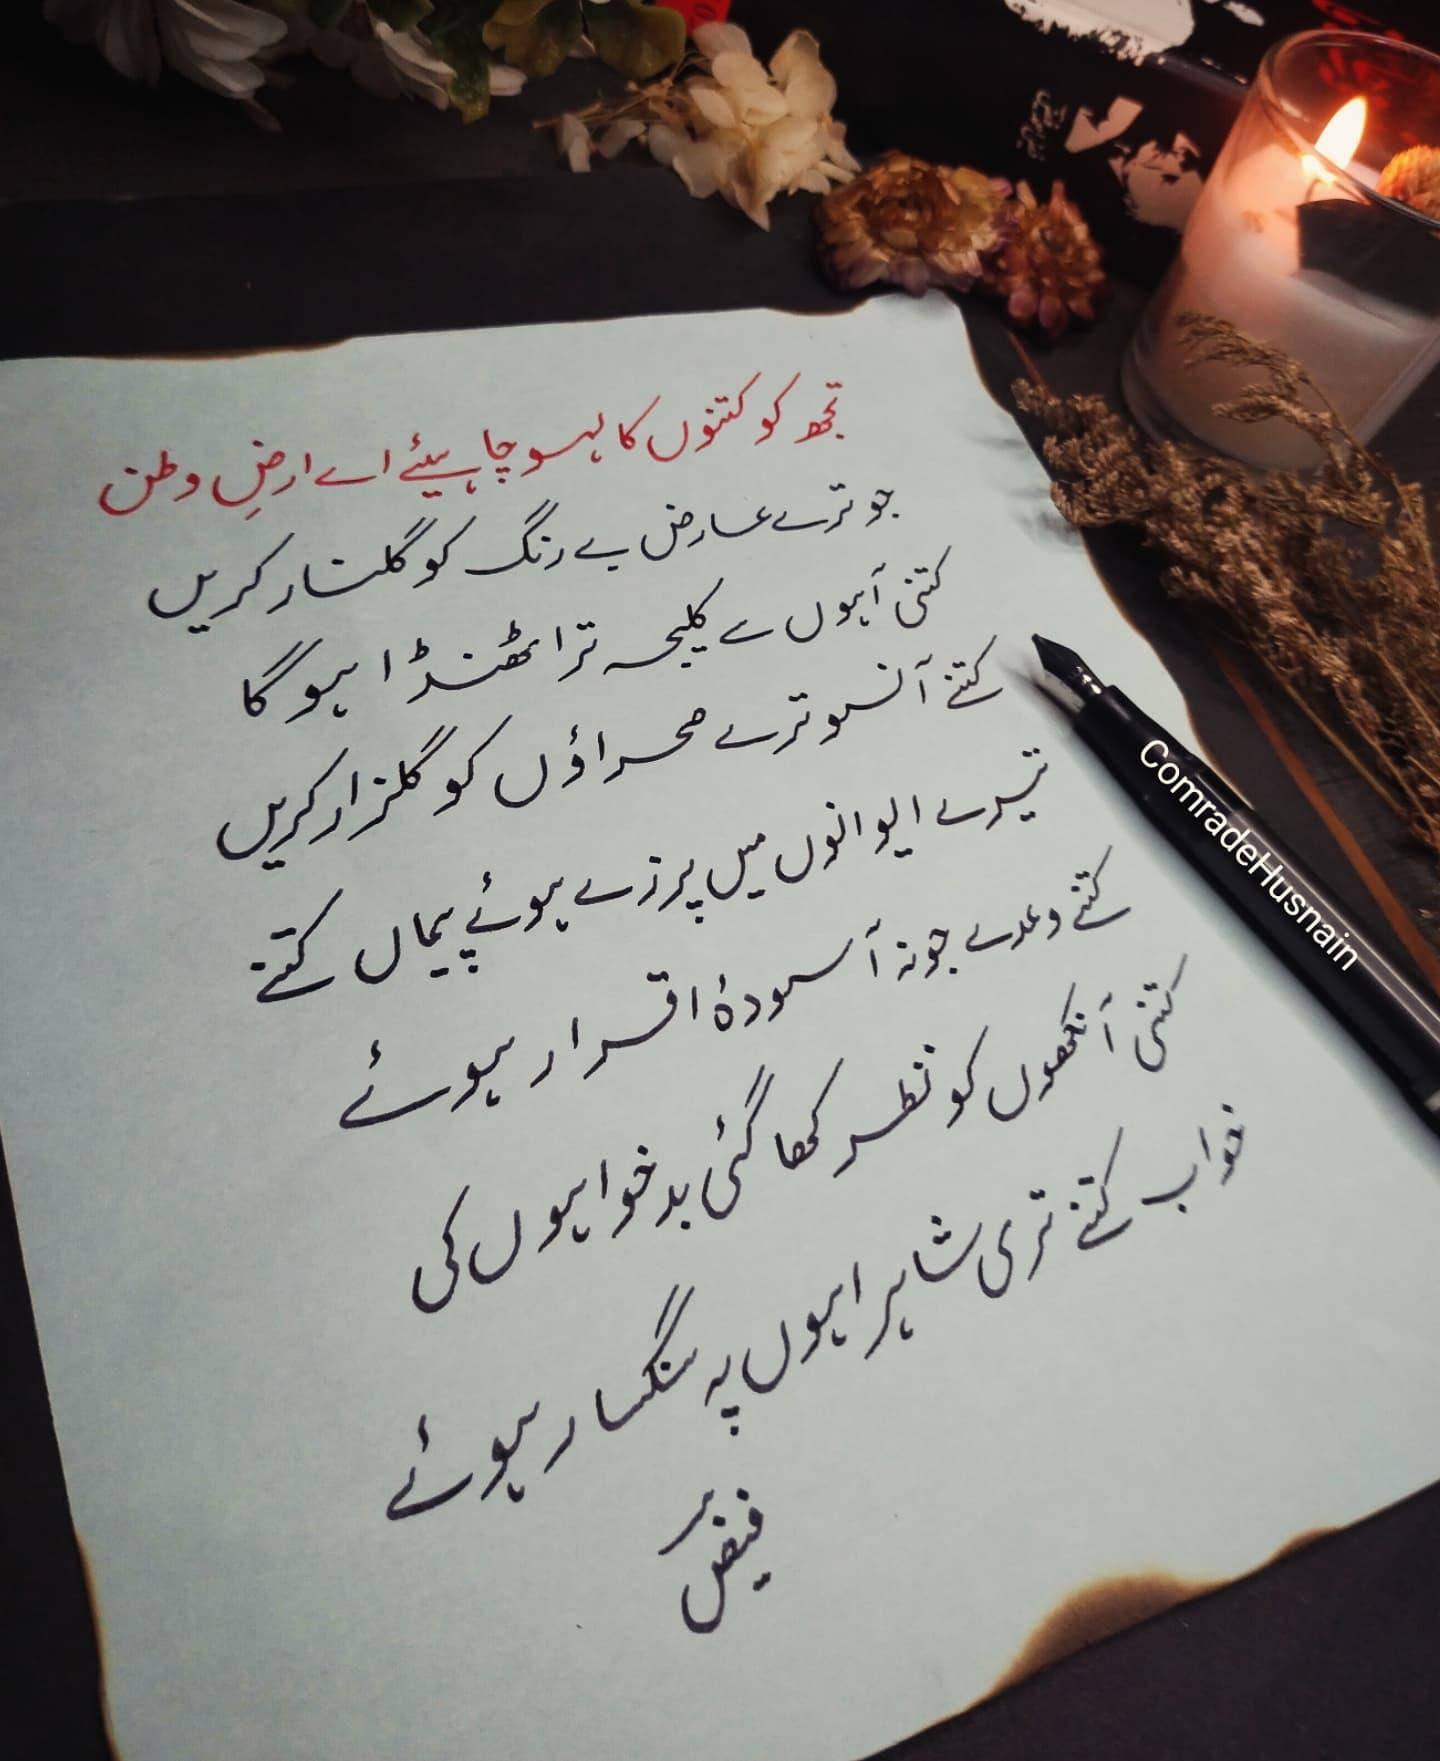 تجھ کو کتنوں کا لہو چاہیئے اے ارضِ وطن
جو ترے عارض بے رنگ کو گلنار کریں
کتنی آہوں سے کلیجہ ترا ٹھنڈا ہو گا
کتنے آنسو ترے صحراؤں کو گلزار کریں
تیرے ایوانوں میں پرزے ہوئے پیماں کتنے
کتنے وعدے جو نہ آسودۂ اقرار ہوئے
کتنی آنکھوں کو نظر کھا گئی بدخواہوں کی
خواب کتنے تری شاہراہوں پہ سنگسار ہوئے
فیض
ComradeHusnain